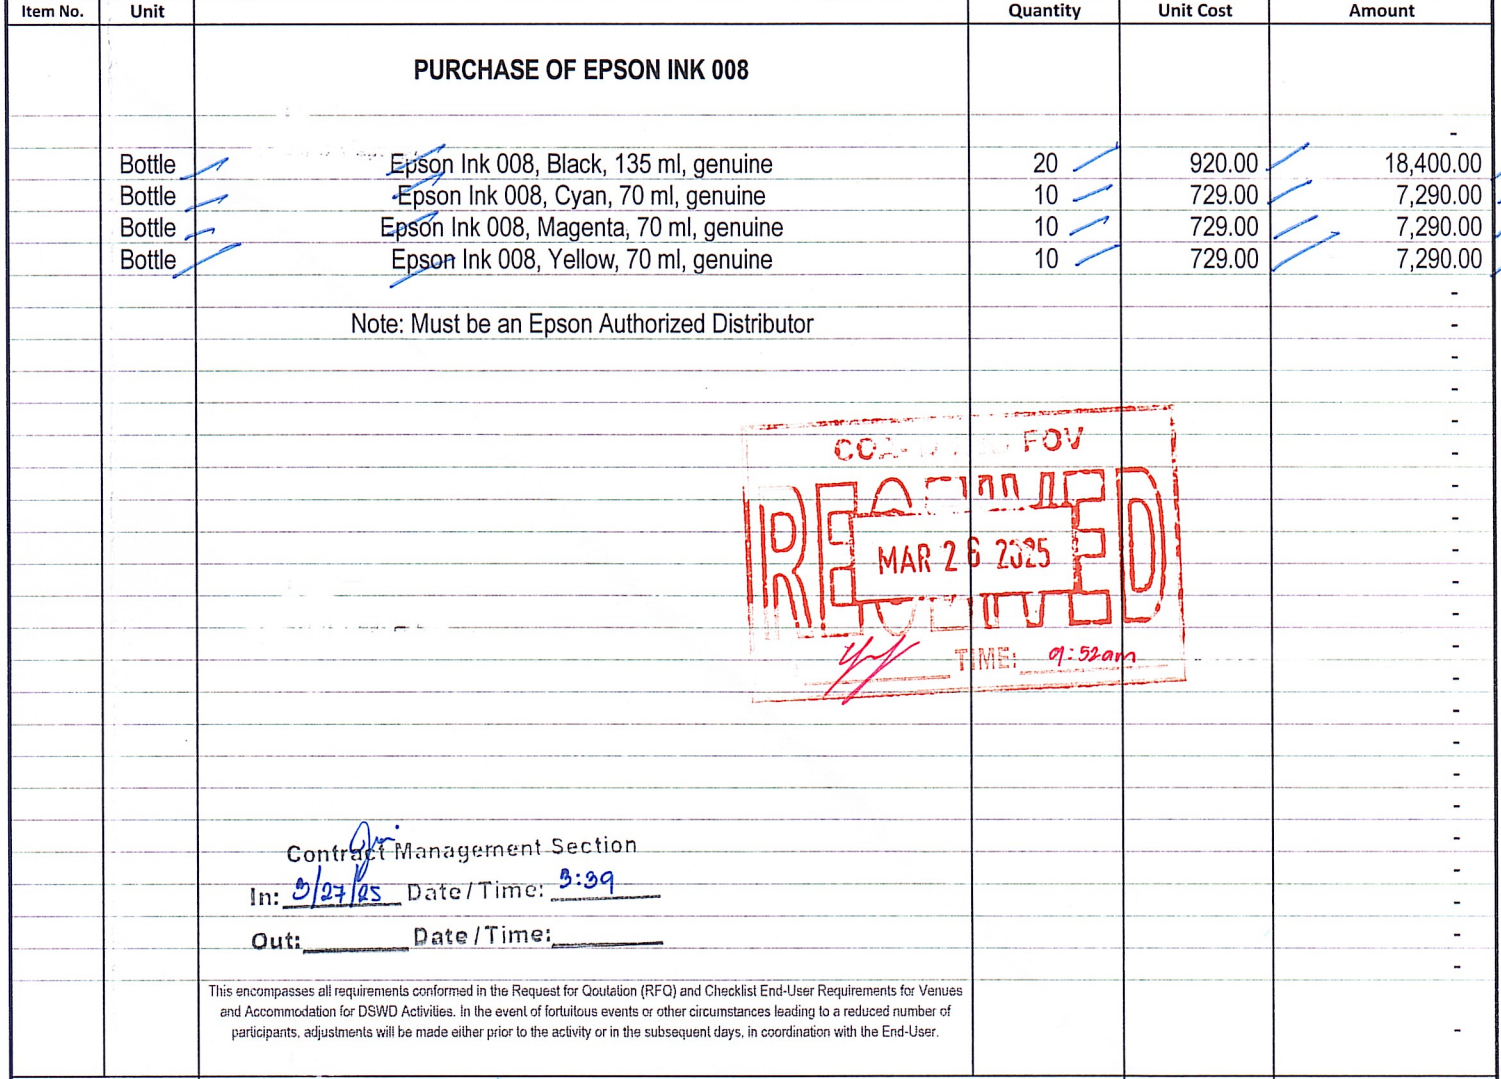 Item No. Unit Quantity Unit Cost Amount
PURCHASE OF EPSON INK 008
-
Bottle Epson Ink 008, Black, 135 ml, genuine 20 920.00 18,400.00
Bottle Epson Ink 008, Cyan, 70 ml, genuine 10 729.00 7,290.00
Bottle Epson Ink 008, Magenta, 70 ml, genuine 10 729.00 7,290.00
Bottle Epson Ink 008, Yellow, 70 ml, genuine 10 729.00 7,290.00
-
Note: Must be an Epson Authorized Distributor -
-
-
-
-
-
-
-
FOV
RECEIVED
MAR 26 2025
TIME: 9:52am
-
-
-
-
-
-
-
-
-
-
-
Contract Management Section
In: 3/27/25 Date/Time: 3:39
Out: Date/Time:
-
-
This encompasses all requirements conformed in the Request for Qoutation (RFQ) and Checklist End-User Requirements for Venues
and Accommodation for DSWD Activities. In the event of fortuitous events or other circumstances leading to a reduced number of
participants, adjustments will be made either prior to the activity or in the subsequent days, in coordination with the End-User.
-